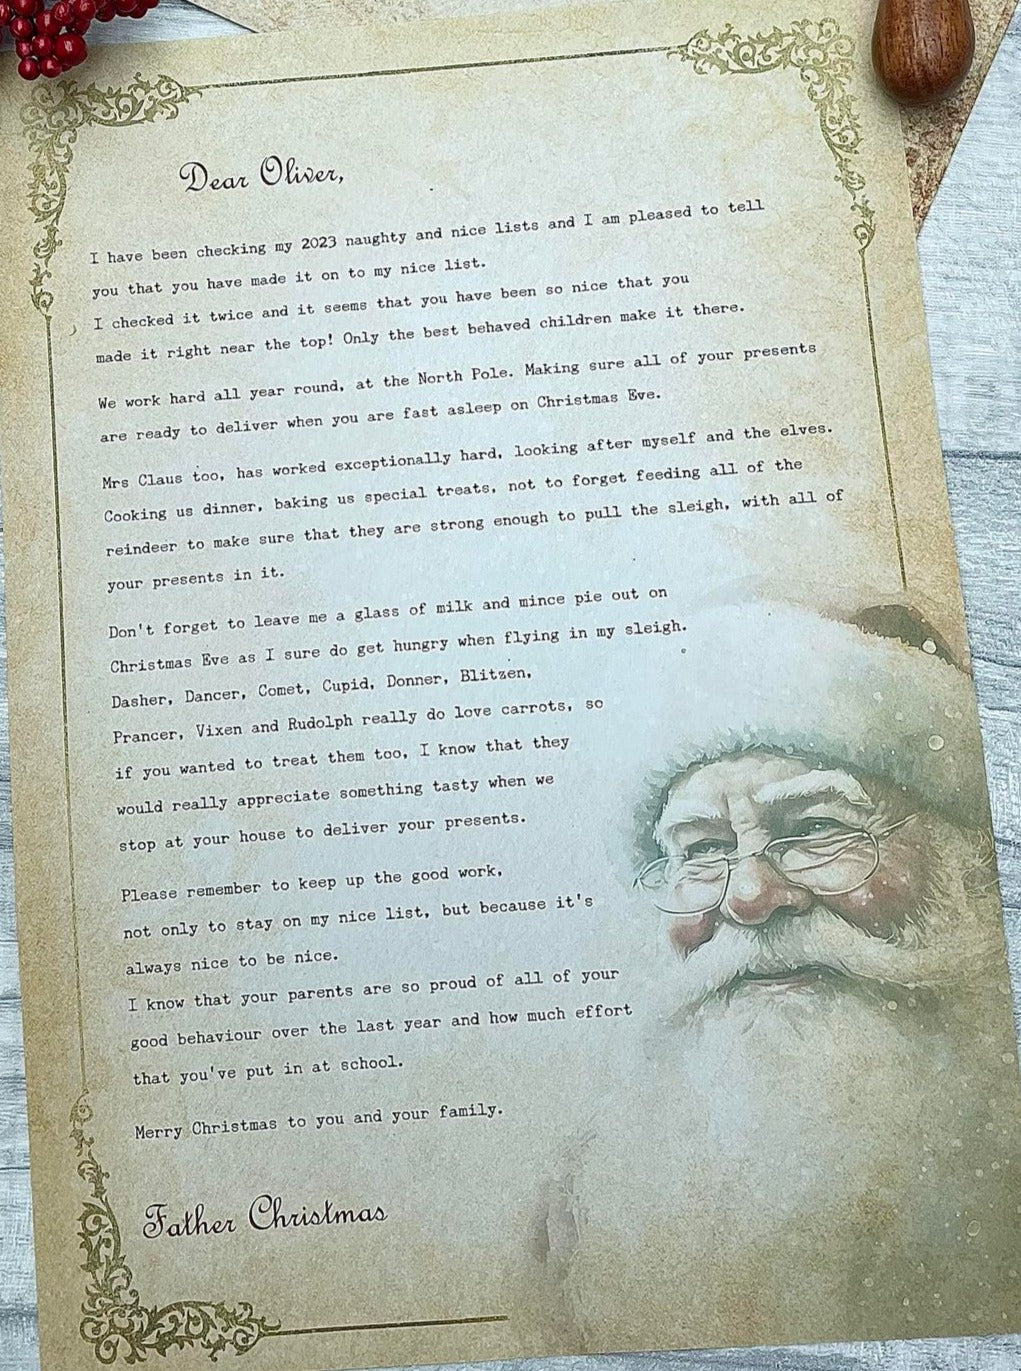 Dear Oliver,
I have been checking my 2023 naughty and nice lists and I am pleased to tell
you that you have made it on to my nice list.
I checked it twice and it seems that you have been so nice that you
made it right near the top! Only the best behaved children make it there.
We work hard all year round, at the North Pole. Making sure all of your presents
are ready to deliver when you are fast asleep on Christmas Eve.
Mrs Claus too, has worked exceptionally hard, looking after myself and the elves.
Cooking us dinner, baking us special treats, not to forget feeding all of the
reindeer to make sure that they are strong enough to pull the sleigh, with all of
your presents in it.
Don't forget to leave me a glass of milk and mince pie out on
Christmas Eve as I sure do get hungry when flying in my sleigh.
Dasher, Dancer, Comet, Cupid, Donner, Blitzen,
Prancer, Vixen and Rudolph really do love carrots, so
if you wanted to treat them too, I know that they
would really appreciate something tasty when we
stop at your house to deliver your presents.
Please remember to keep up the good work,
not only to stay on my nice list, but because it's
always nice to be nice.
I know that your parents are so proud of all of your
good behaviour over the last year and how much effort
that you've put in at school.
Merry Christmas to you and your family.
Father Christmas